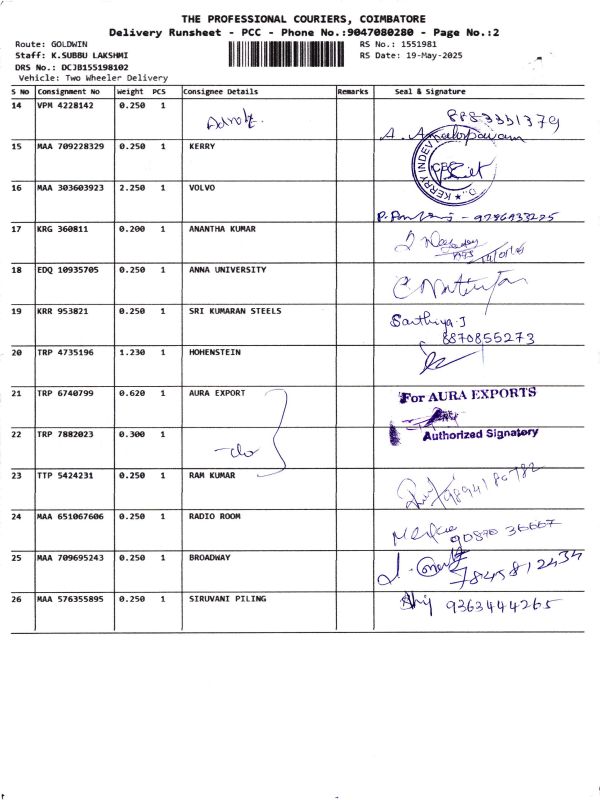 THE PROFESSIONAL COURIERS, COIMBATORE
Delivery Runsheet - PCC - Phone No.:9047080280 - Page No.:2
Route: GOLDWIN RS No.: 1551981
Staff: K.SUBBU LAKSHMI RS Date: 19-May-2025
DRS No.: DCJB155198102
Vehicle: Two Wheeler Delivery
S No Consignment No Weight PCS Consignee Details Remarks Seal & Signature
14 VPM 4228142 0.250 1 8883331379
A.
15 MAA 709228329 0.250 1 KERRY KERRY INDEV
16 MAA 303603923 2.250 1 VOLVO
17 KRG 360811 0.200 1 ANANTHA KUMAR
18 EDQ 10935705 0.250 1 ANNA UNIVERSITY
19 KRR 953821 0.250 1 SRI KUMARAN STEELS Sarthiya.J
8870855273
20 TRP 4735196 1.230 1 HOHENSTEIN
21 TRP 6740799 0.620 1 AURA EXPORT For AURA EXPORTS
22 TRP 7882023 0.300 1 Authorized Signatory
-do
23 TTP 5424231 0.250 1 RAM KUMAR 9894180782
24 MAA 651067606 0.250 1 RADIO ROOM
25 MAA 709695243 0.250 1 BROADWAY 7845812434
26 MAA 576355895 0.250 1 SIRUVANI PILING 9363444265